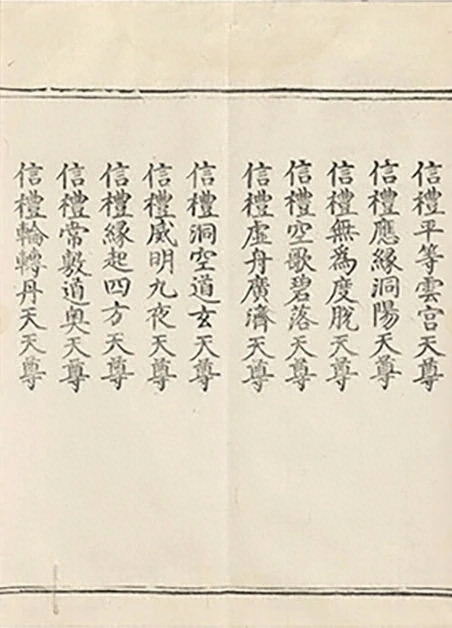 信禮平等雲宫天尊
信禮應緣洞陽天尊
信禮無為度脫天尊
信禮空歌碧落天尊
信禮虛舟廣濟天尊
信禮洞空道玄天尊
信禮威明九夜天尊
信禮緣起四方天尊
信禮常敷道奥天尊
信禮輪轉丹天天尊